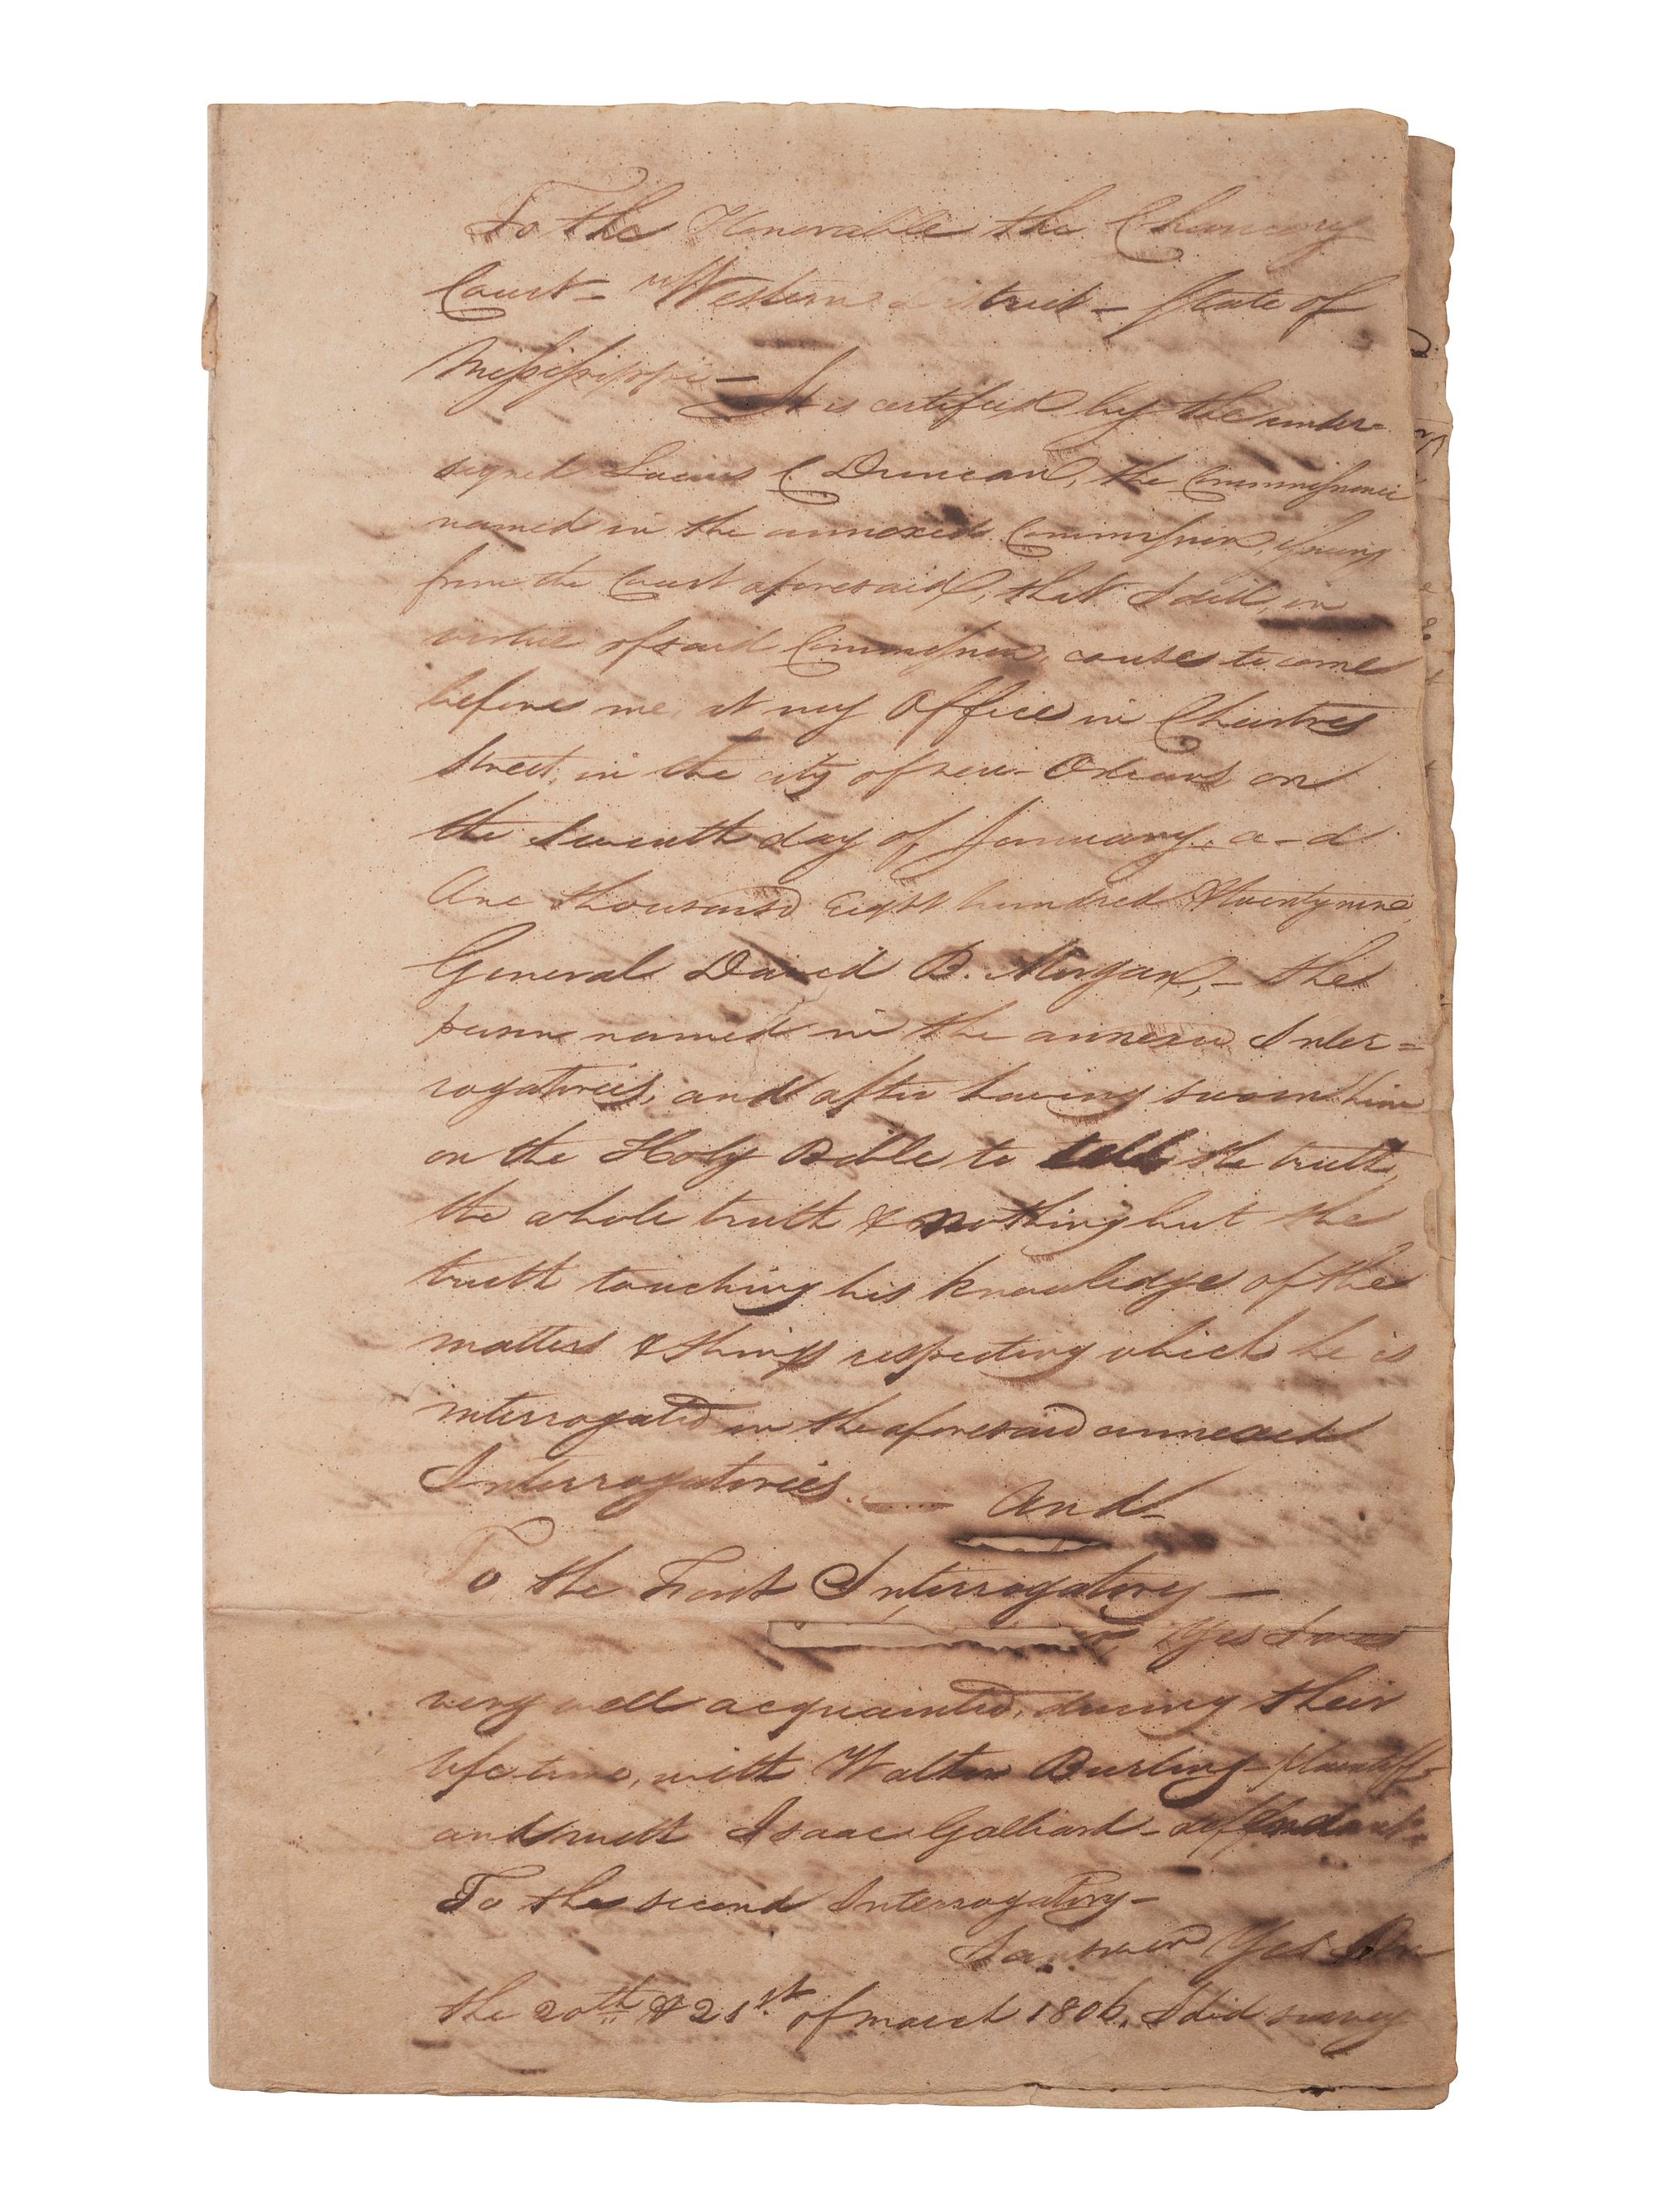 To the Honorable the Chancery
Court - Western District - State of
Mississippi -
It is certified by the under=
signed Lucius C. Duncan, the Commissioner
named in the annexed Commission, issuing
from the Court aforesaid, that I did, in
virtue of said Commission, cause to come
before me, at my Office in Chartres
Street, in the city of New-Orleans on
the Seventh day of January, a-d
One thousand Eight hundred & twenty nine,
General David B. Morgan, - the
person named in the annexed Inter=
rogatories, and after having sworn him
on the Holy Bible to tell the truth,
the whole truth & nothing but the
truth touching his knowledge of the
matters & things respecting which he is
interrogated in the aforesaid annexed
Interrogatories. — And -
To the First Interrogatory —
Yes I was
very well acquainted, during their
life time, with Walter Burling - plaintiff -
and with Isaac Galliard - defendant -
To the second Interrogatory -
I answer Yes On
the 20th & 21st of march 1806. I did survey